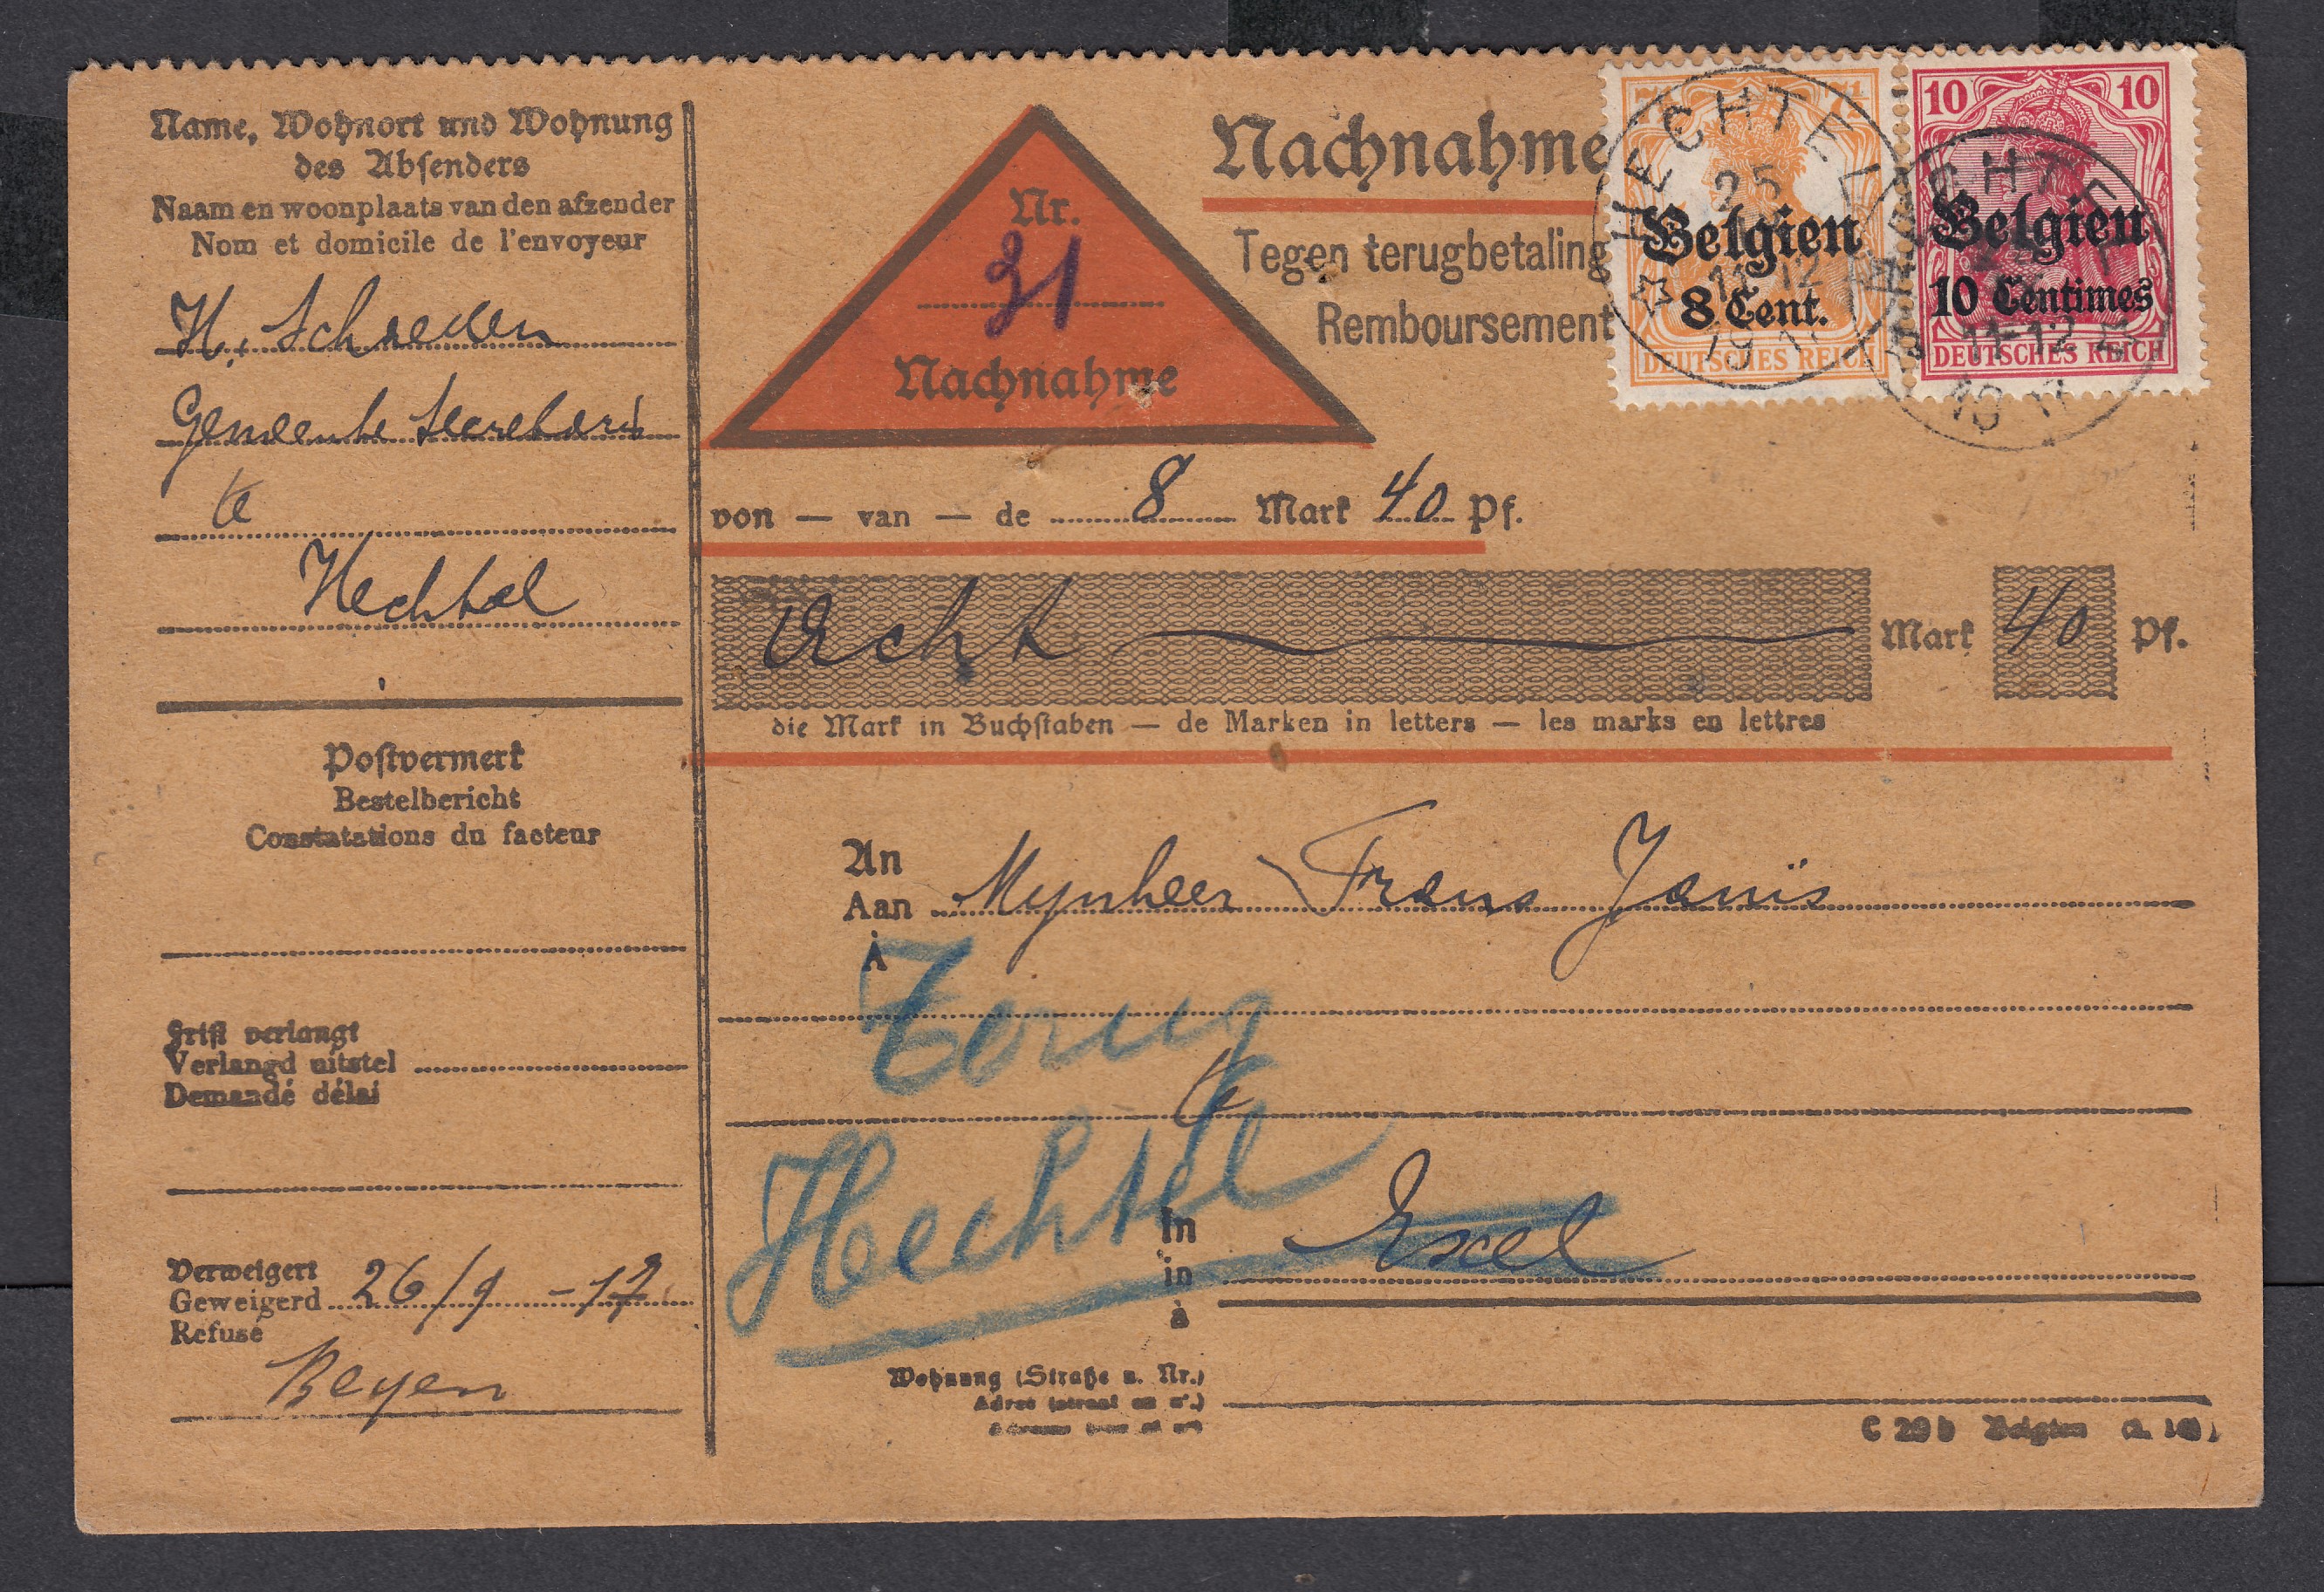 Name, Wohnort und Wohnung
des Absenders
Naam en woonplaats van den afzender
Nom et domicile de l'envoyeur
H. Schraeven
Gemeente Secretaris
te
Hechtel
Postvermerk
Bestelbericht
Constatations du facteur
Frist verlangt
Verlangd uitstel
Demandé délai
Verweigert
Geweigerd 26/9 -17
Refusé
Beyen
Nr.
31
Nachnahme
Nachnahme
Tegen terugbetaling
Remboursement
HECHTEL
25
11-12
Belgien
8 Cent.
DEUTSCHES REICH
10 10
Belgien
10 Centimes
11-12
DEUTSCHES REICH
von — van — de 8 Mark 40 Pf.
Acht Mark 40 Pf.
die Mark in Buchstaben — de Marken in letters — les marks en lettres
An
Aan Mynheer Frans Janis
À
Terug
te
Hechtel
In
in Exel
à
Wohnung (Straße u. Nr.)
C 29 b Belgien